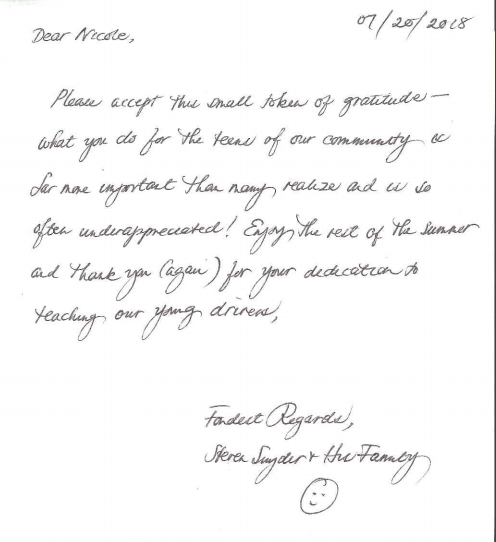 07/20/2018
Dear Nicole,
Please accept this small token of gratitude —
what you do for the teens of our community is
far more important than many realize and is so
often underappreciated! Enjoy the rest of the summer
and thank you (again) for your dedication to
teaching our young drivers,
Fondest Regards,
Steven Snyder & His Family